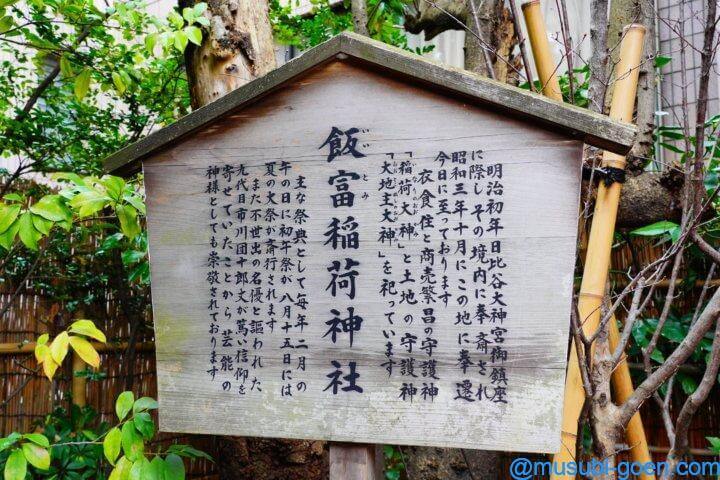 明治初年日比谷大神宮御鎮座
に際し その境内に奉斎され
昭和三年十月にこの地に奉遷
今日に至っております
衣食住と商売繁昌の守護神
「稲荷大神」と土地の守護神
「大地主大神」を祀っています
飯富稲荷神社
いいとみ
主な祭典として毎年二月の
午の日に初午祭が八月十五日には
夏の大祭が斎行されます
また不世出の名優と謳われた
九代目市川団十郎丈が篤い信仰を
寄せていたことから 芸能の
神様としても崇敬されております
@musubi-goen.com